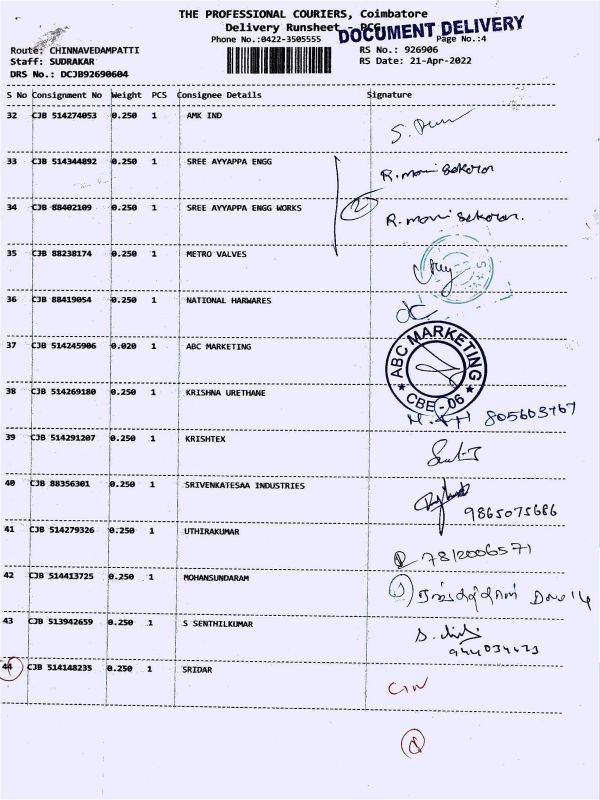 THE PROFESSIONAL COURIERS, Coimbatore
Delivery Runsheet - PCG
DOCUMENT DELIVERY
Phone No.:0422-3505555 Page No.:4
Route: CHINNAVEDAMPATTI RS No.: 926906
Staff: SUDRAKAR RS Date: 21-Apr-2022
DRS No.: DCJB92690604
S No Consignment No Weight PCS Consignee Details Signature
32 CJB 514274053 0.250 1 AMK IND
33 CJB 514344892 0.250 1 SREE AYYAPPA ENGG R.mani Sekaran
34 CJB 88402109 0.250 1 SREE AYYAPPA ENGG WORKS 2 R.mani Sekaran.
35 CJB 88238174 0.250 1 METRO VALVES
36 CJB 88419054 0.250 1 NATIONAL HARWARES
37 CJB 514245906 0.020 1 ABC MARKETING
ABC MARKETING
CBE-06
38 CJB 514269180 0.250 1 KRISHNA URETHANE
39 CJB 514291207 0.250 1 KRISHTEX
40 CJB 88356301 0.250 1 SRIVENKATESAA INDUSTRIES
9865075686
41 CJB 514279326 0.250 1 UTHIRAKUMAR
7812006571
42 CJB 514413725 0.250 1 MOHANSUNDARAM
43 CJB 513942659 0.250 1 S SENTHILKUMAR
44 CJB 514148235 0.250 1 SRIDAR